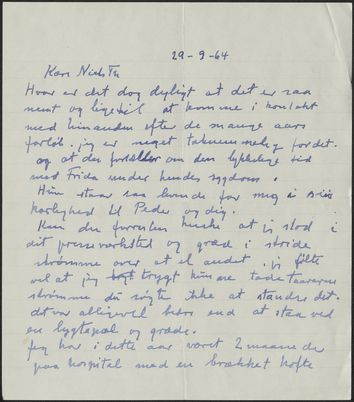 29-9-64
Kære Niels Th
Hvor er det dog dejligt at det er saa
nemt og ligetil at komme i kontakt
med hinanden efter de mange aars
forløb. jeg er meget taknemmelig for det.
og at du fortæller om den lykkelige tid
med Frida under hendes sygdom.
Hun staar saa levende for mig i sin
kærlighed til Peder og dig.
Kan du forresten huske at jeg stod i
dit presseværksted og græd i stride
strømme over at el andet. jeg følte
vel at jeg trygt kunne lade taarerne
strømme du søgte ikke at standse det.
det var alligevel bedre end at staa ved
en lygtepæl og græde.
Jeg har i dette aar været 2 maaneder
paa hospital med en brækket hofte